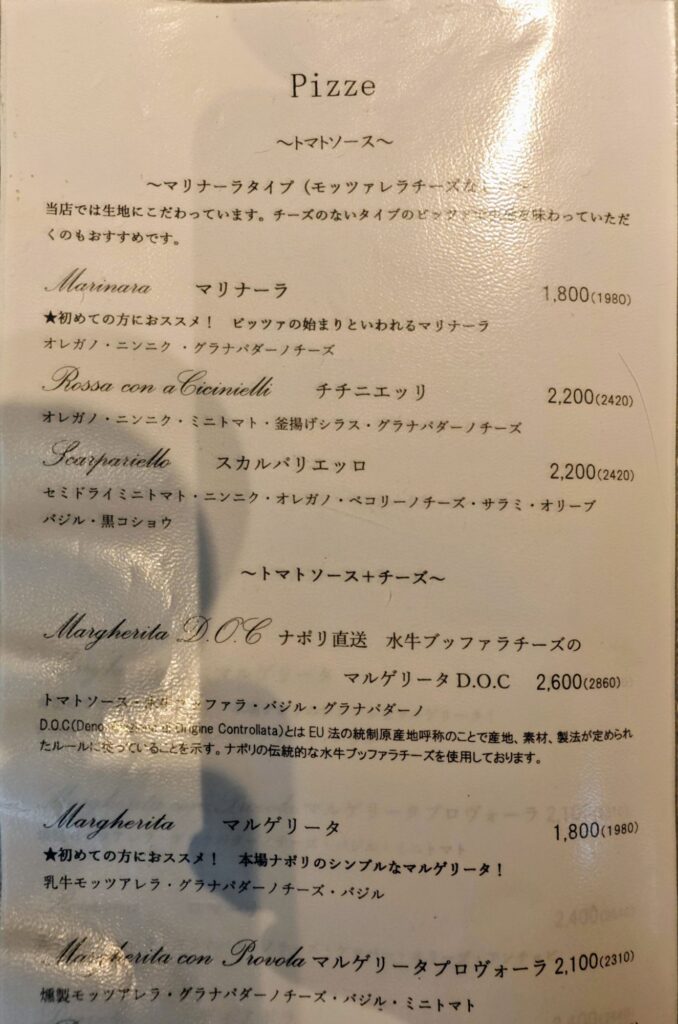 Pizze
～トマトソース～
～マリナーラタイプ（モッツァレラチーズな
当店では生地にこだわっています。チーズのないタイプのピッツァ を味わっていただ
くのもおすすめです。
Marinara マリナーラ 1,800(1980)
★初めての方におススメ！ ピッツァの始まりといわれるマリナーラ
オレガノ・ニンニク・グラナパダーノチーズ
Rossa con a Cicinielli チチニエッリ 2,200(2420)
オレガノ・ニンニク・ミニトマト・釜揚げシラス・グラナパダーノチーズ
Scarpariello スカルパリエッロ 2,200(2420)
セミドライミニトマト・ニンニク・オレガノ・ペコリーノチーズ・サラミ・オリーブ
バジル・黒コショウ
～トマトソース＋チーズ～
Margherita D.O.C ナポリ直送 水牛ブッファラチーズの
マルゲリータ D.O.C 2,600(2860)
トマトソース・ ブッファラ・バジル・グラナパダーノ
D.O.C(Deno Origine Controllata)とは EU 法の統制原産地呼称のことで産地、素材、製法が定められ
たルールに従っていることを示す。ナポリの伝統的な水牛ブッファラチーズを使用しております。
Margherita マルゲリータ 1,800(1980)
★初めての方におススメ！ 本場ナポリのシンプルなマルゲリータ！
乳牛モッツアレラ・グラナパダーノチーズ・バジル
Margherita con Provola マルゲリータプロヴォーラ 2,100(2310)
燻製モッツアレラ・グラナパダーノチーズ・バジル・ミニトマト